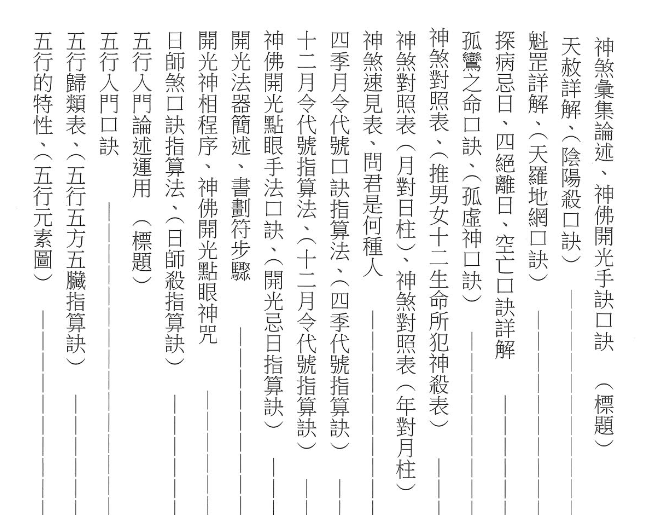 神煞彙集論述、神佛開光手訣口訣　（標題）
天赦詳解、（陰陽殺口訣）
魁罡詳解、（天羅地網口訣）
探病忌日、四絕離日、空亡口訣詳解
孤鸞之命口訣、（孤虛神口訣）
神煞對照表、（推男女十二生命所犯神殺表）
神煞對照表（月對日柱）、神煞對照表（年對月柱）
神煞速見表、問君是何種人
四季月令代號口訣指算法、（四季代號指算訣）
十二月令代號指算法、（十二月令代號指算訣）
神佛開光點眼手法口訣、（開光忌日指算訣）
開光法器簡述、書劃符步驟
開光神相程序、神佛開光點眼神咒
日師煞口訣指算法、（日師殺指算訣）
五行入門論述運用　（標題）
五行入門口訣
五行歸類表、（五行五方五臟指算訣）
五行的特性、（五行元素圖）